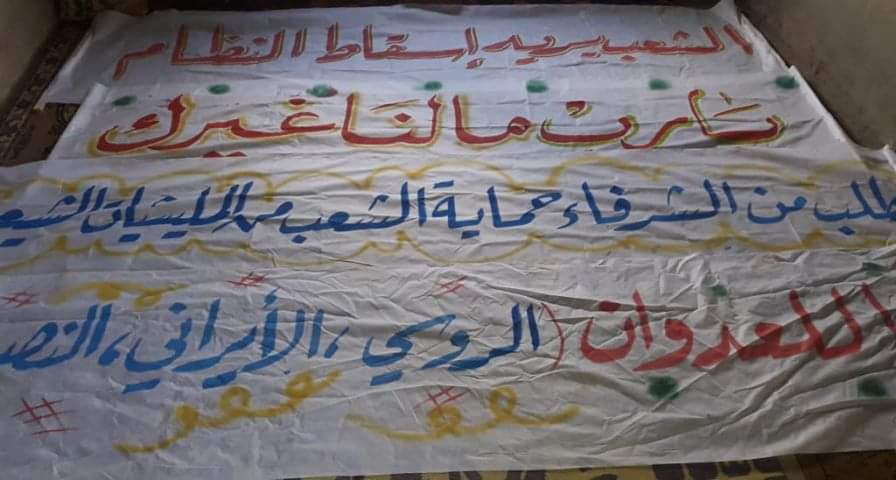 الشعب يريد إسقاط النظام
يارب مالنا غيرك
طلب من الشرفاء حماية الشعب من المليشيات الشيع
لا للعدوان (الروسي، الأيراني، النص